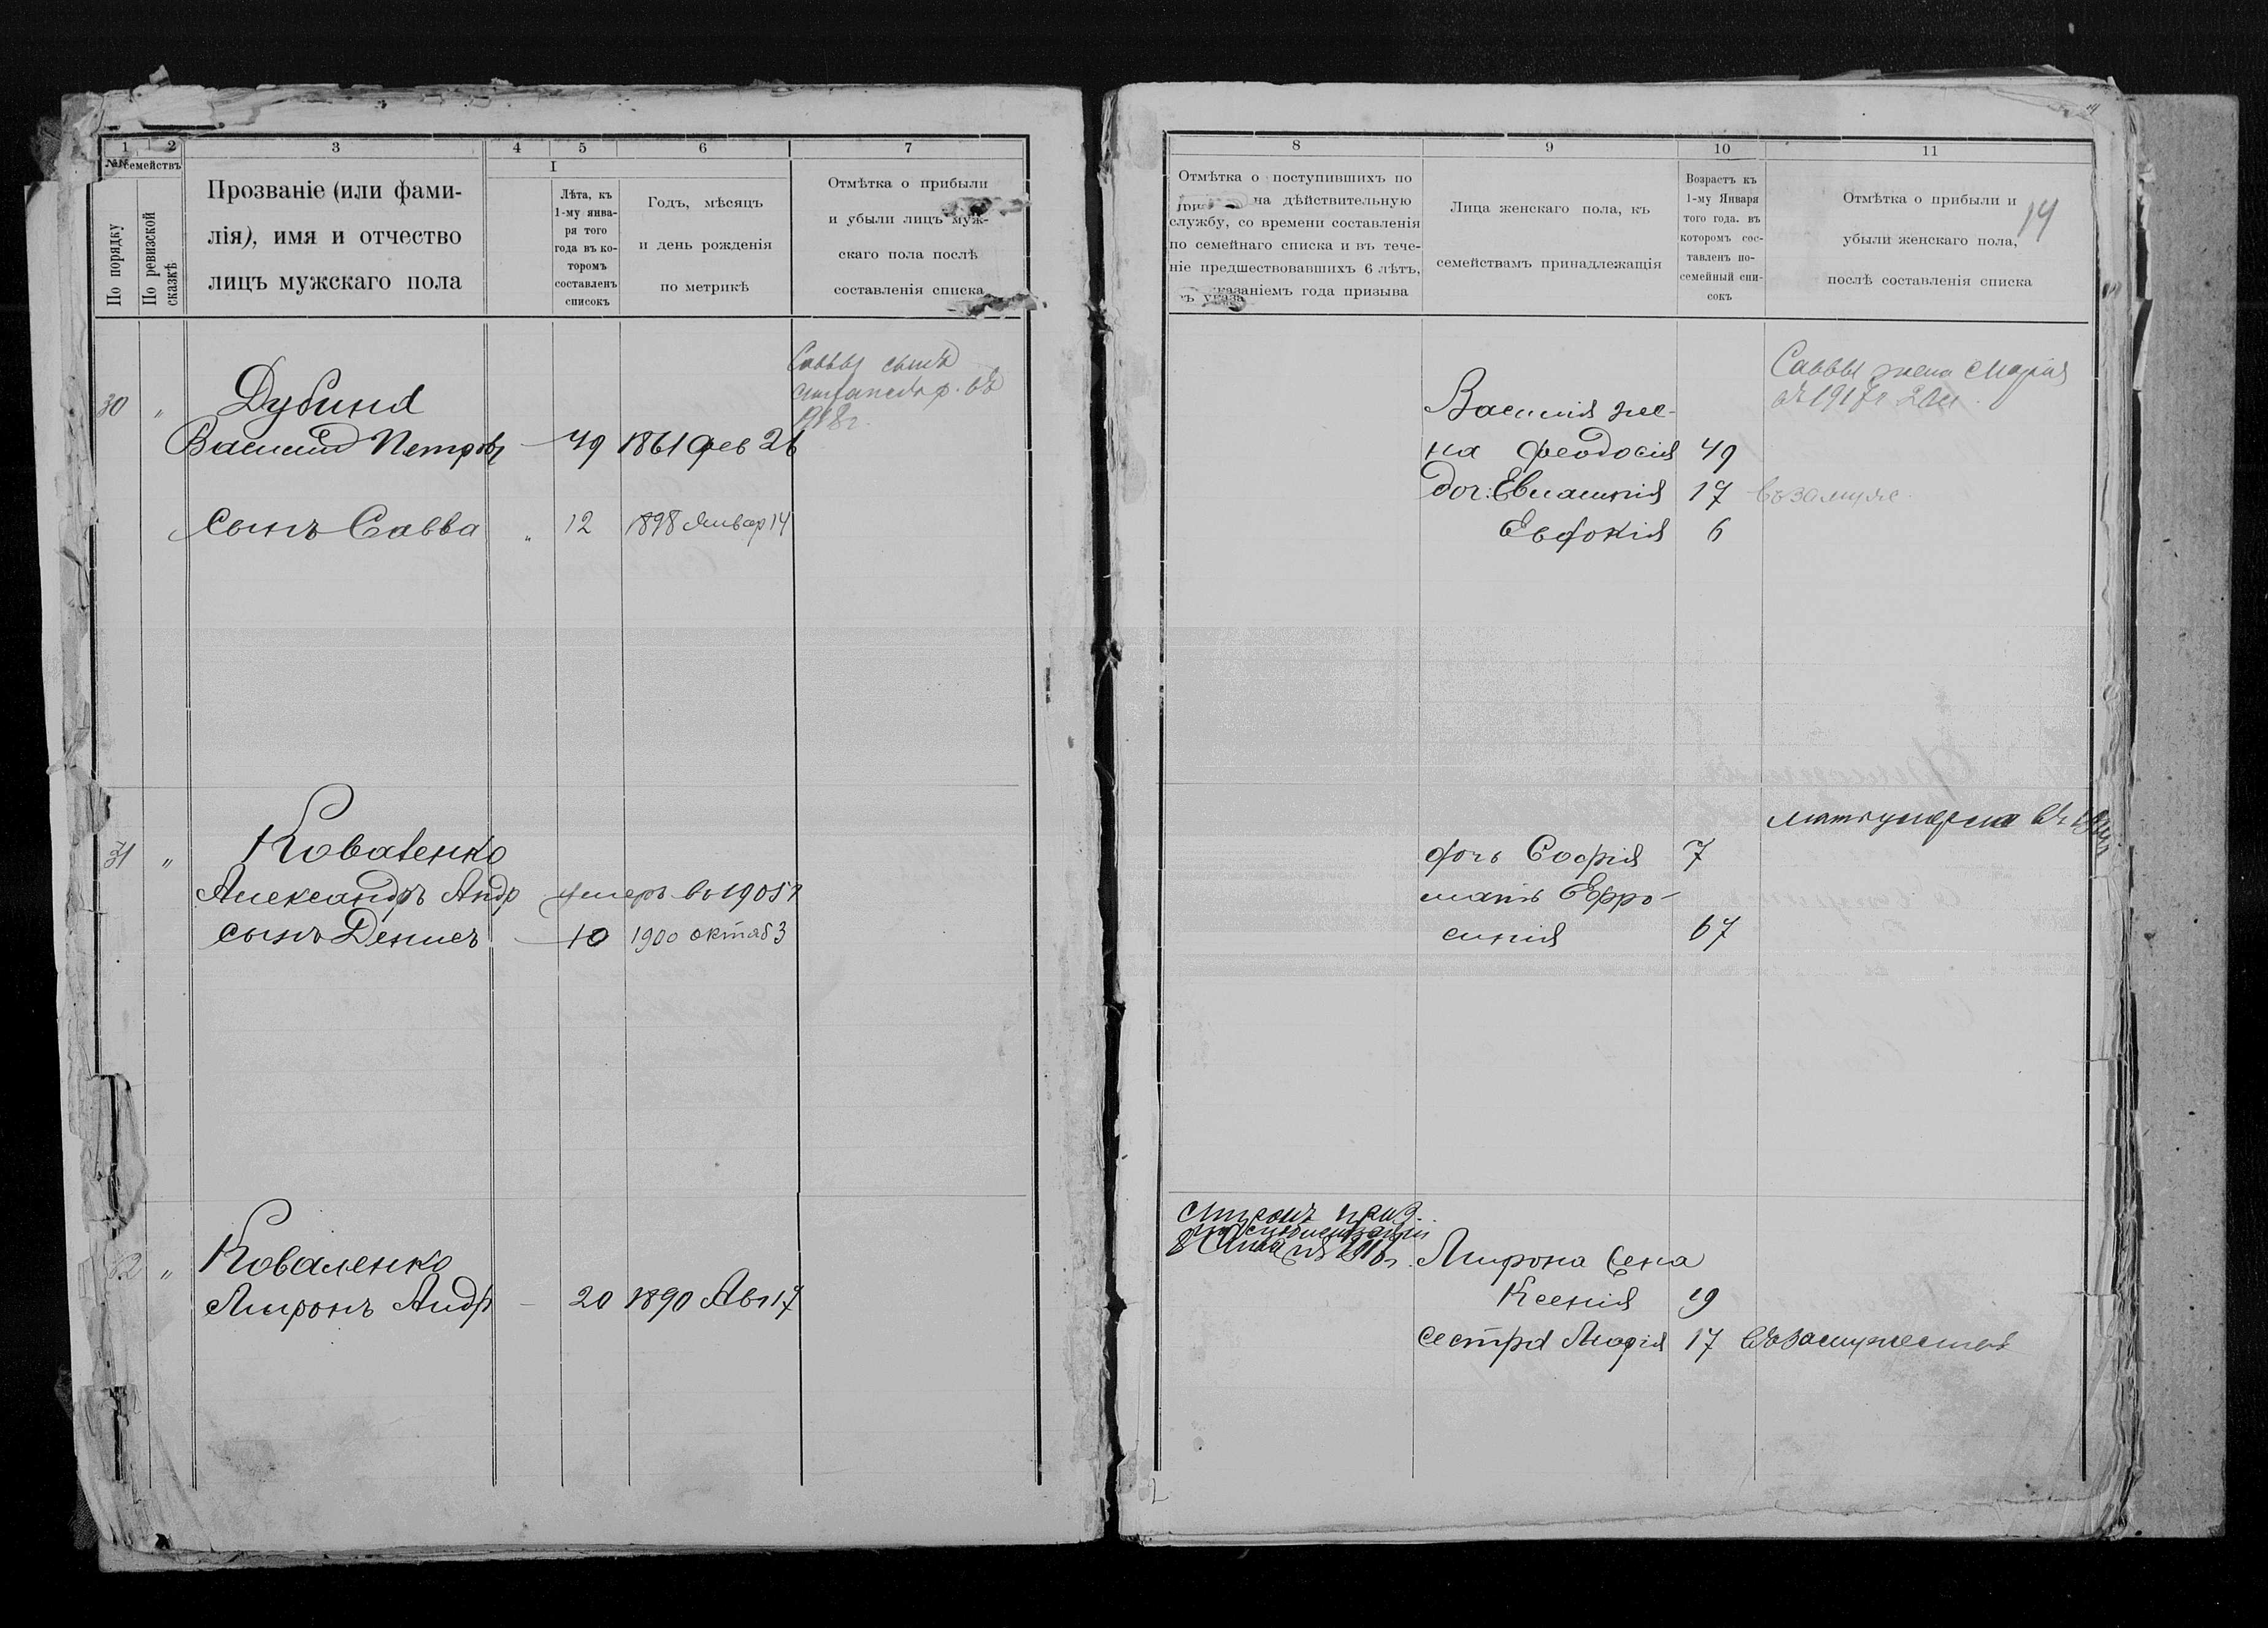 1 2 3 4 5 6 7
№№ семействъ
По порядку
По ревизской сказкѣ
Прозваніе (или фами-
лія), имя и отчество
лицъ мужскаго пола
I
Лѣта, къ
1-му янва-
ря того
года въ ко-
торомъ
составленъ
списокъ
Годъ, мѣсяцъ
и день рожденія
по метрикѣ
Отмѣтка о прибыли
и убыли лицъ муж-
скаго пола послѣ
составленія списка
30 „ Дубина
Саввы сынъ
въ
1918г.
Василій Петровъ — 49 1861 фев 26
сынъ Савва „ 12 1898 Январ 14
31 „ Коваленко
Александръ Андр умеръ въ 1905г
сынъ Денисъ — 10 1900 октяб 3
32 „ Коваленко
Миронъ Андр — 20 1890 Авг 17
8 9 10 11
Отмѣтка о поступившихъ по
на дѣйствительную
службу, со времени составленія
по семейнаго списка и въ тече-
ніе предшествовавшихъ 6 лѣтъ,
съ указаніемъ года призыва
Лица женскаго пола, къ
семействамъ принадлежащія
Возрастъ къ
1-му Января
того года. въ
которомъ сос-
тавленъ по-
семейный спи-
сокъ
Отмѣтка о прибыли и
убыли женскаго пола,
послѣ составленія списка
14
Саввы жена Марія
1917г
Василія же-
на Феодосія 49
доч: Евгенія 17 въ замуже
Евдокія 6
мать умерла въ
дочь Софія 7
мать Ефро-
синія 67
Миронъ приз.
Мирона жена
Ксенія 19
сестра Марія 17 въ замужестве